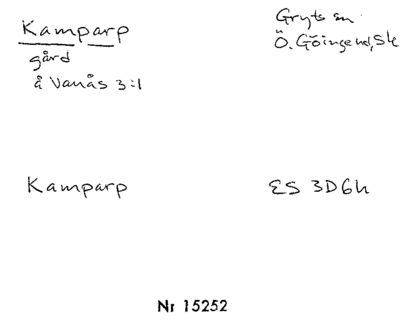 Kamparp
Gryts sn
Ö. Göinge hd, Sk
gård
å Vanås 3:1
Kamparp
ES 3D6h
Nr 15252